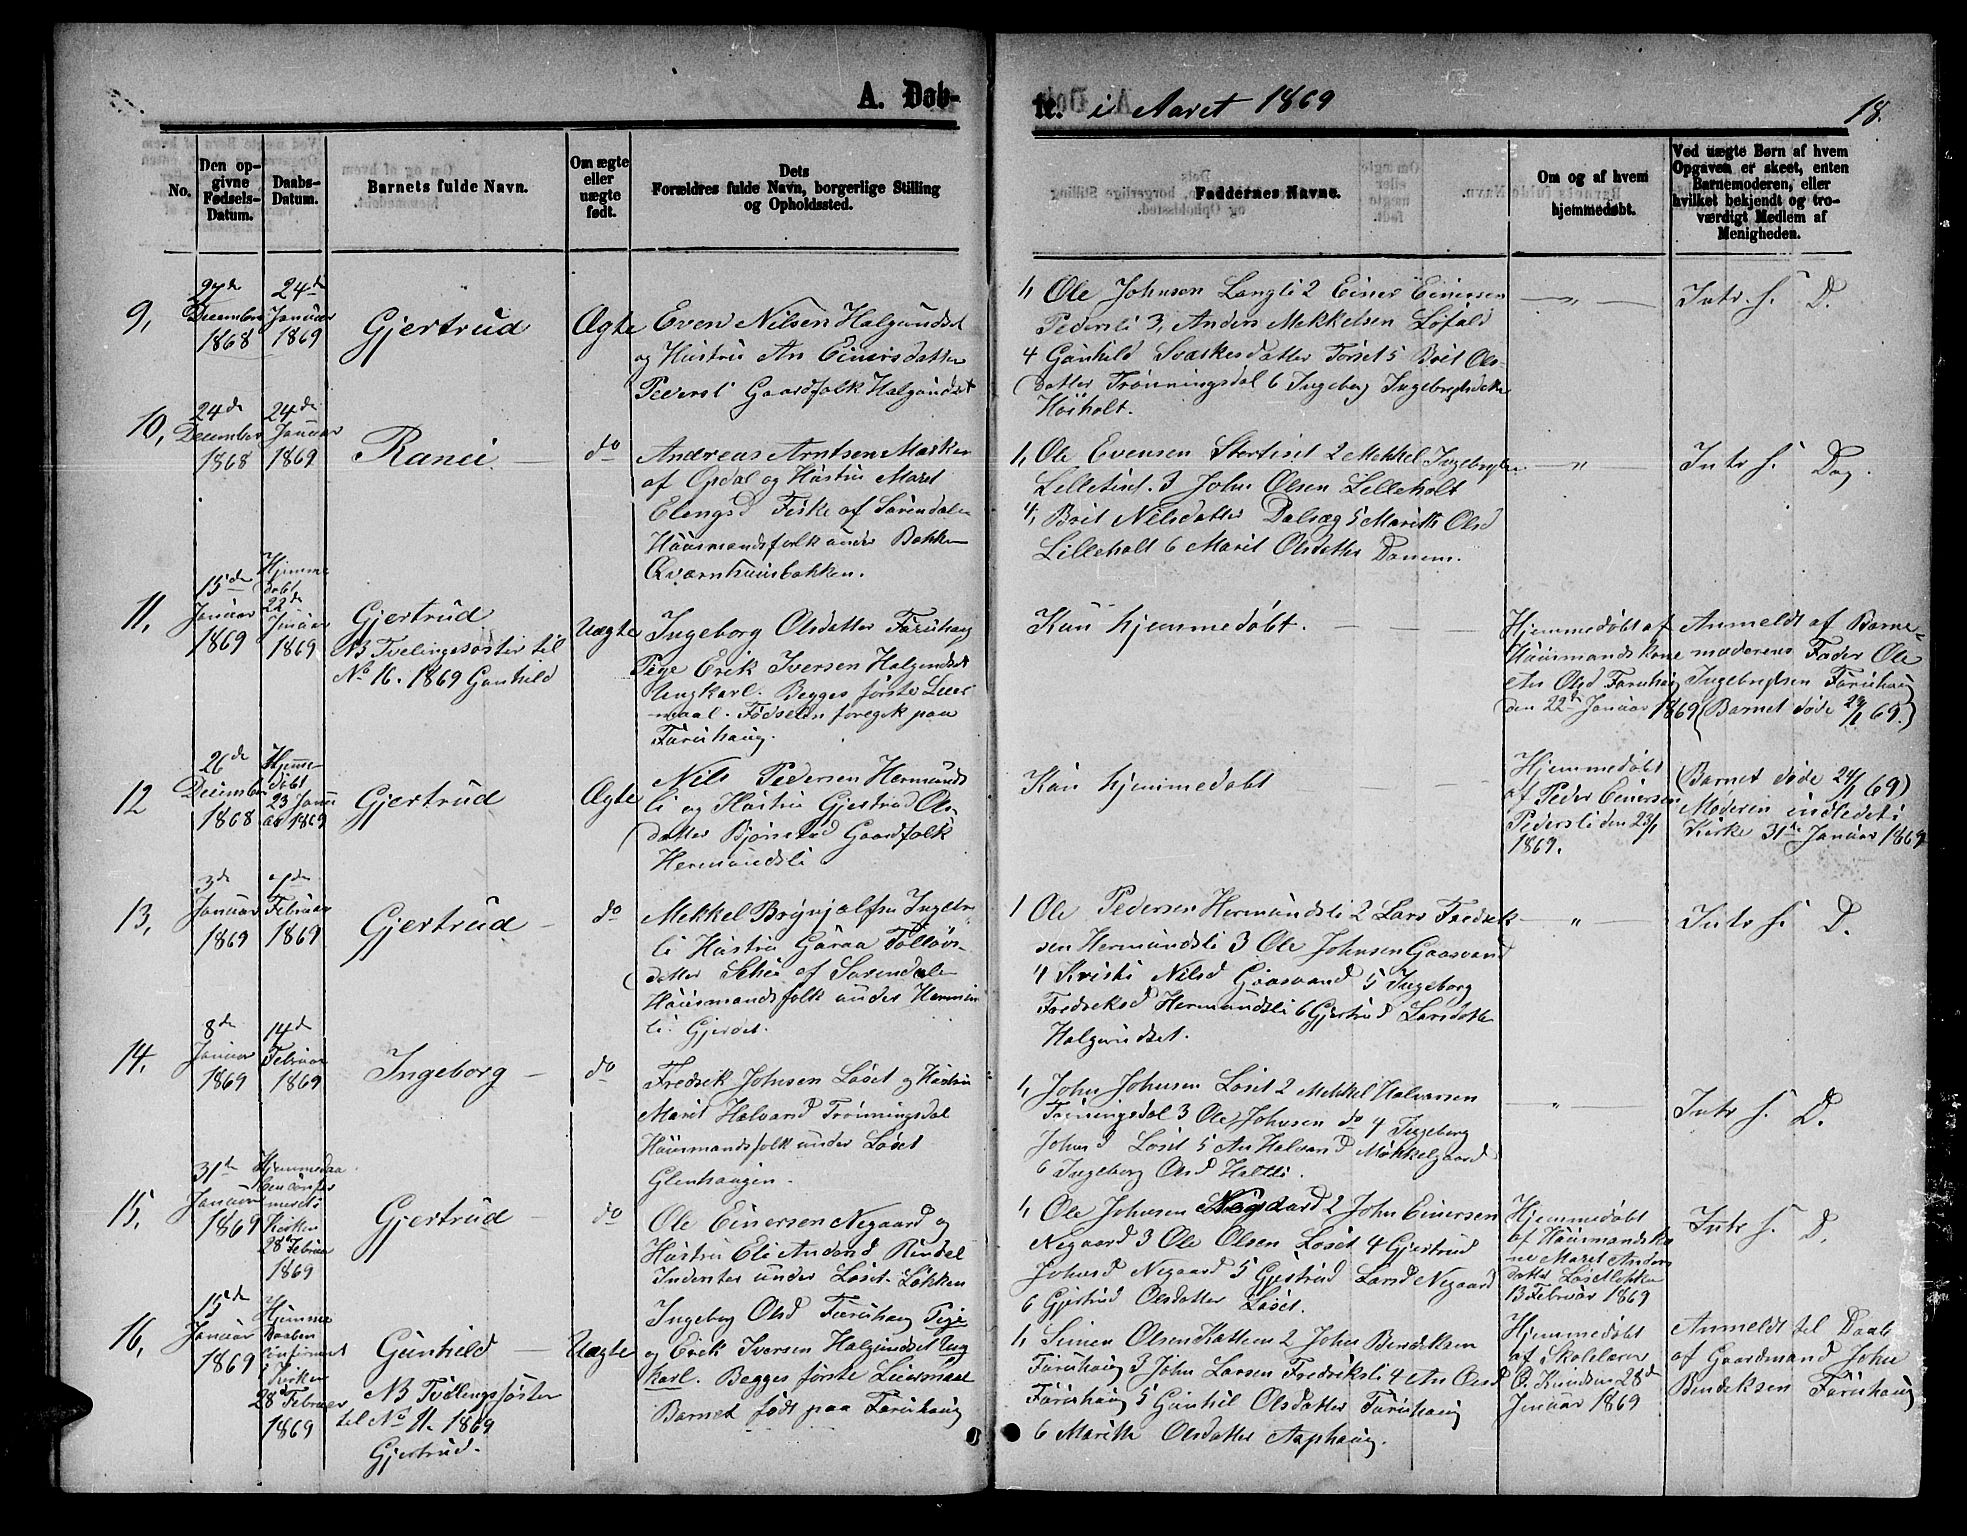 A. Døb-
te. i Aaret 1869
18.
No.
Den op-
givne
Fødsels-
Datum.
Daabs-
Datum.
Barnets fulde Navn.
Om ægte
eller
uægte
født.
Dets
Forældres fulde Navn, borgerlige Stilling
og Opholdssted.
Faddernes Navne.
Om og af hvem
hjemmedøbt.
Ved uægte Børn af hvem
Opgaven er skeet, enten
Barnemoderen, eller
hvilket bekjendt og tro-
værdigt Medlem af
Menigheden.
9,
27de
December
1868
24de
Januar
1869
Gjertrud
Ægte
Even Nilsen Halgundset
og Hustru An Einersdatter
Pedersli Gaardfolk Halgundset
1, Ole Johnsen Langli 2 Einer Einersen
Pedersli 3, Anders Mekkelsen Løfald
4 Gunhild Sværkesdatter Torset 5 Brit Ols-
datter Trønningsdal 6 Ingeborg Ingebrigtsdatter
Høiholt.
— " —
Intr. s. D.
10,
24de
December
1868
24de
Januar
1869
Ranei —
do
Andreas Arntsen Marken
af Opdal og Hustru Maret
Elengsd Fiske af Surendalen
Huusmandsfolk under Bakken
Qværnhuusbakken.
1, Ole Evensen Stortiset 2 Mekkel Ingebrigtsen
Lilletiset. 3 John Olsen Lilleholt
4, Brit Nilsdatter Dalsæg 5 Marith Olsd
Lilleholt 6 Marit Olsdatter Donem.
— " —
Intr s. Dag.
11,
15de
Januar
1869
Hjemme
døbt
22de
Januar
1869
Gjertrud
NB Tvelingesøster til
No 16. 1869 Gunhild
Uægte
Ingeborg Olsdatter Furuhaug
Pige Erik Iversen Halgundset
Ungkarl. Begges første Leier
maal. Fødselen foregik paa
Furuhaug.
Kun hjemmedøbt. — — —
Hjemmedøbt af
Huusmandskone
An Olsd Furuhaug
den 22de Januar 1869
Anmeldt af Barne-
moderens Fader Ole
Ingebrigtsen Furuhaug
(Barnet døde 24/1 69.)
12
26de
December
1868
Hjemme
døbt
23 Janu
ar 1869
Gjertrud
Ægte
Nils Pedersen Hermunds
li og Hustru Gjertrud Ols-
datter Bjønstad Gaardfolk
Hermundsli
Kun hjemmedøbt — —
Hjemmedøbt
af Peder Einersen
Pedersli den 23/1
1869.
(Barnet døde 24/1 69)
Moderen indledet i
Kirke 31te Januar 1869
13,
3de
Januar
1869
7de
Februar
1869
Gjertrud —
do
Mekkel Brynjolfsen Ingebr-
li Hustru Guraa Tolløvs-
datter Schei af Surendalen
Huusmandsfolk under Hermun
li. Gjerdet.
1 Ole Pedersen Hermundsli 2 Lars Fredrik
sen Hermundsli 3 Ole Johnsen Gaasvand
4 Kristi Nilsd Gaasvand 5 Ingeborg
Fredriksd Hermundsli 6 Gjertrud Larsdatter
Halgundset.
— " —
Intr s. D.
14,
8de
Januar
1869
14de
Februar
1869
Ingeborg —
do
Fredrik Johnsen Løset og Hustru
Marit Halvarsd Trønningsdal
Huusmandsfolk under Løset
Glenhaugen.
1, John Johnsen Løset 2 Mekkel Halvarsen
Trønningsdal 3 Ole Johnsen do 4 Ingeborg
Johnsd Løset 5 An Halvarsd Mekkelgaard
6 Ingeborg Olsd Haltli.
— " —
Intr s. D.
15,
31te
Januar
1869
Hjemmedaa
ben confir
meret i
Kirken
28de Februar
1869
Gjertrud —
do
Ole Einersen Negaard og
Hustru Eli Andersd Rindal
Inderster under Løset. Løkken
1, Ole Johnsen Negaard 2 John Einersen
Negaard 3 Ole Olsen Løset 4 Gjertrud
Johnsd Negaard 5 Gjertrud Larsd Negaard
6 Gjertrud Olsdatter Løset.
Hjemmedøbt
af Huusmandsko
ne Maret Anders
datter Løsetløkken
13 Februar 1869
Intr s. D.
16,
15de
Januar
1869
Hjemme
Daaben
confirmeret
i Kirken
28de Februar
1869
Gunhild —
NB Tvillingsøster
til No 11. 1869
Gjertrud.
Uægte
Ingeborg Olsd Furuhaug Pige
og Erik Iversen Halgundset Ung
karl. Begges første Leiermaal
Barnet født paa Furuhaug
1, Simen Olsen Kattem 2 John Bendiksen
Furuhaug 3 John Larsen Fredriksli 4 An Olsd
Furuhaug 5 Gunhil Olsdatter Furuhaug
6 Marith Olsdatter Aaphaug.
Hjemmedøbt
af Skolelærer
O. Knudsen 28de
Januar 1869
Anmeldt til Daab
af Gaardmand John
Bendiksen Furuhaug